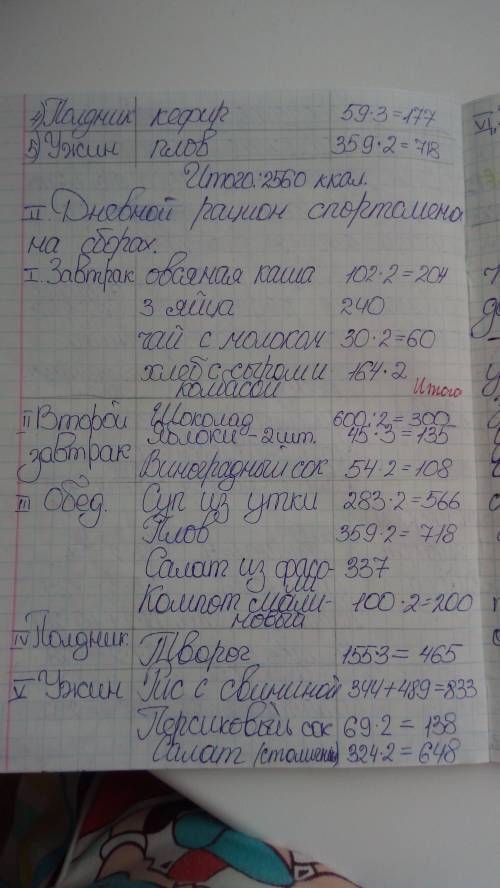 4) Полдник кефир 59·3=177
5) Ужин плов 359·2=718
Итого: 2560 ккал.
II. Дневной рацион спортсмена
на сборах.
I. Завтрак овсяная каша 102·2=204
3 яйца 240
чай с молоком 30·2=60
хлеб с сыром и 164·2
колбасой Итого
II Второй Шоколад 600:2=300
завтрак Яблоки - 2 шт. 45·3=135
Виноградный сок 54·2=108
III Обед. Суп из утки 283·2=566
Плов 359·2=718
Салат из фасо- 337
ли
Компот мали- 100·2=200
новый
IV Полдник. Творог 155·3=465
V Ужин Рис с свининой 344+489=833
Персиковый сок 69·2=138
Салат 324·2=648
VI